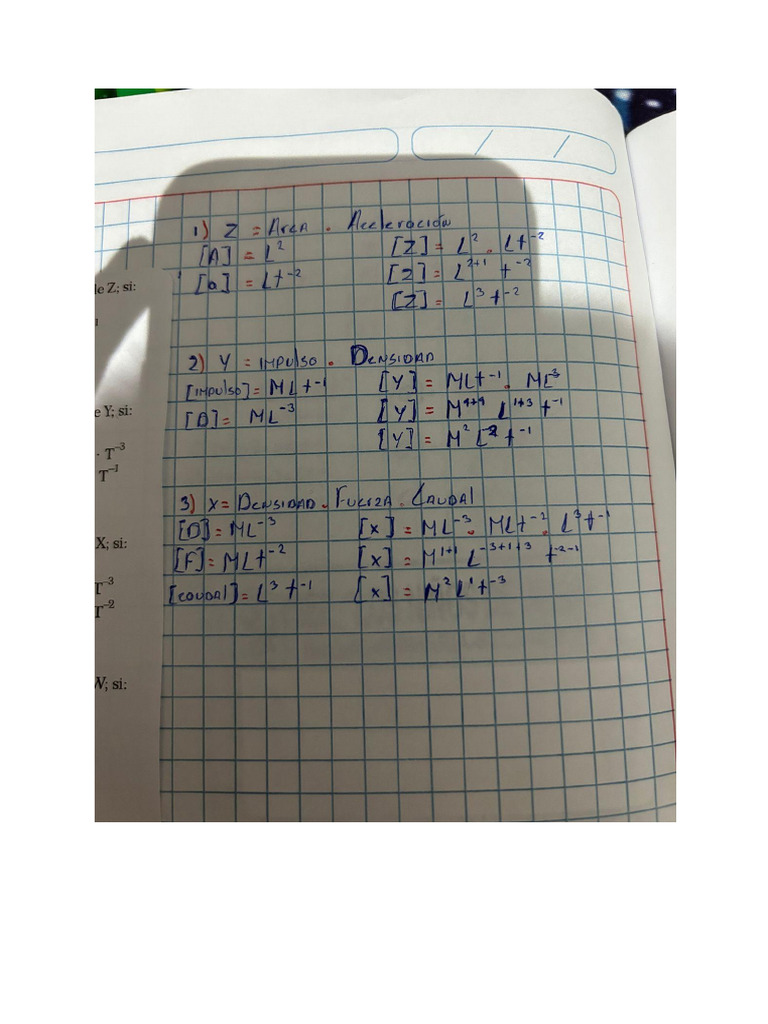 1) Z = Area . Aceleración
[A] = L²
[a] = Lt⁻²
[Z] = L² . Lt⁻²
[Z] = L²⁺¹ t⁻²
[Z] = L³ t⁻²
le Z; si:
2) Y = impulso . Densidad
[impulso] = MLt⁻¹
[D] = ML⁻³
[Y] = MLt⁻¹ . ML⁻³
[Y] = M¹⁺¹ L¹⁺³ t⁻¹
[Y] = M² L⁻² t⁻¹
e Y; si:
· T⁻³
T⁻¹
3) X = Densidad . Fuerza . Caudal
[D] = ML⁻³
[F] = MLt⁻²
[caudal] = L³ t⁻¹
[x] = ML⁻³ . MLt⁻² . L³t⁻¹
[x] = M¹⁺¹ L⁻³⁺¹⁺³ t⁻²⁻¹
[x] = M² L¹ t⁻³
X; si:
T⁻³
T⁻²
W; si: